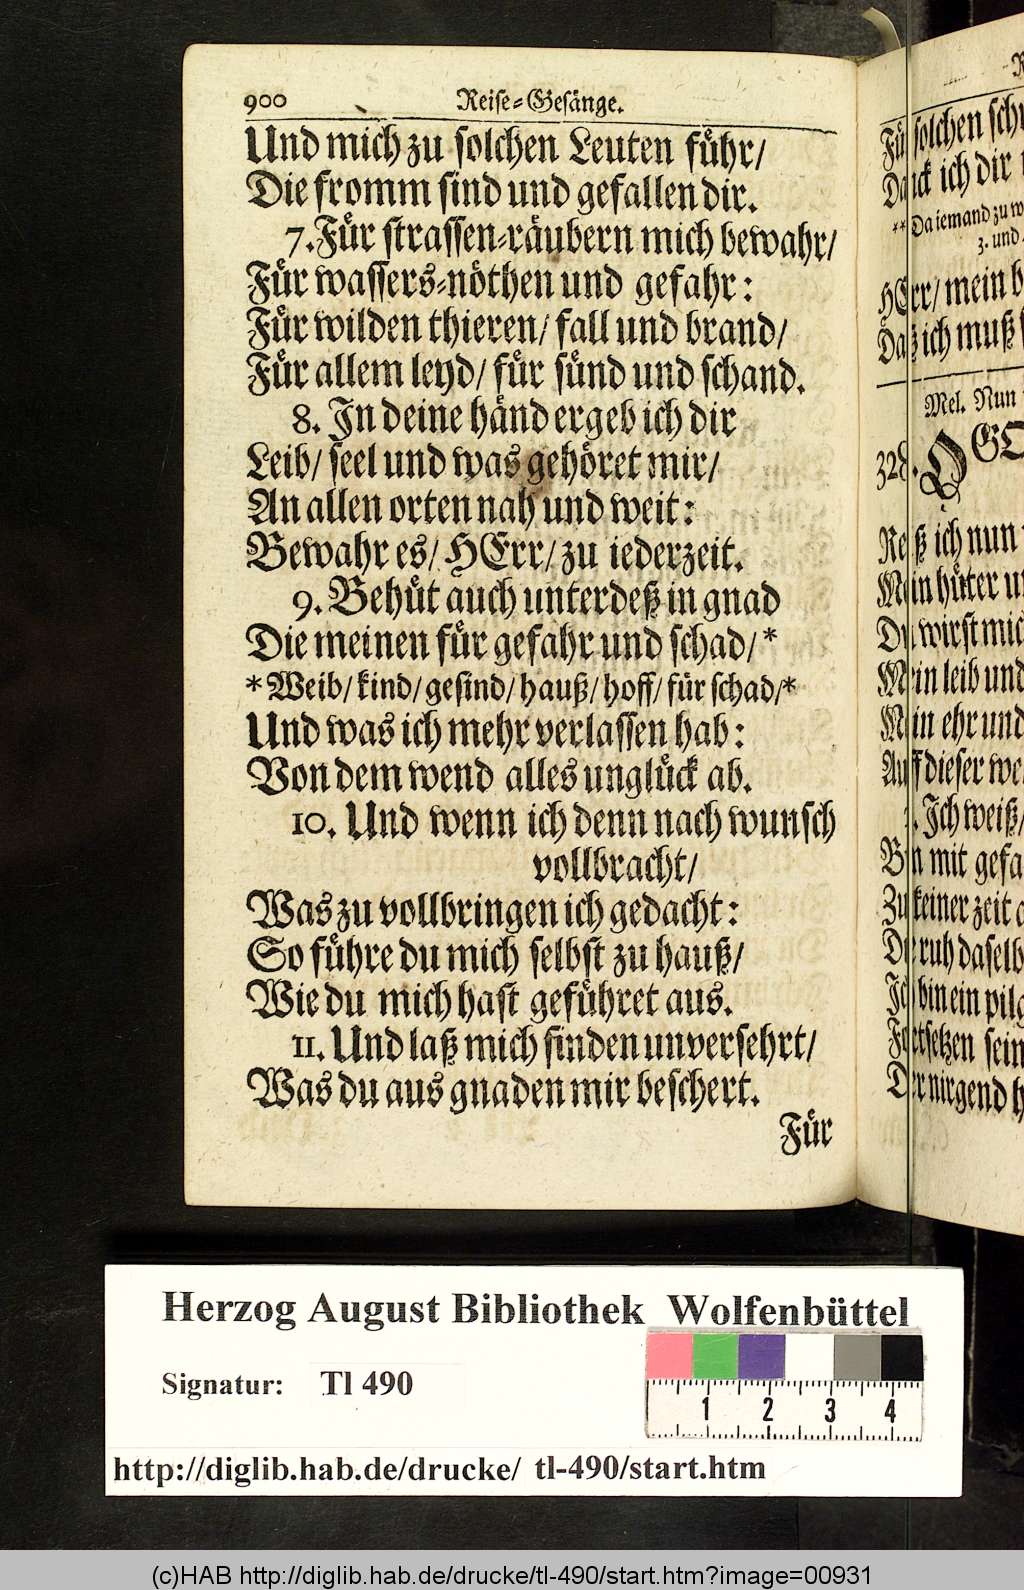 900 Reise-Gesänge.
Und mich zu solchen Leuten führ/
Die fromm sind und gefallen dir.
7. Für strassen-räubern mich bewahr/
Für wassers-nöthen und gefahr:
Für wilden thieren/ fall und brand/
Für allem leyd/ für sünd und schand.
8. In deine händ ergeb ich dir
Leib/ seel und was gehöret mir/
An allen orten nah und weit:
Bewahr es/ HErr/ zu iederzeit.
9. Behüt auch unterdeß in gnad
Die meinen für gefahr und schad/*
*Weib/ kind/ gesind/ hauß/ hoff/ für schad/*
Und was ich mehr verlassen hab:
Von dem wend alles unglück ab.
10. Und wenn ich denn nach wunsch
vollbracht/
Was zu vollbringen ich gedacht:
So führe du mich selbst zu hauß/
Wie du mich hast geführet aus.
11. Und laß mich finden unversehrt/
Was du aus gnaden mir beschert.
Für
solchen
ich dir
** Da iemand zu
3. und
HErr/ mein
Daß ich muß
Mel. Nun
328. O
ich nun
Mein hüter
Du wirst
Mein leib und
Mein ehr und
Auff dieser
Ich weiß/
Bin mit
Zu keiner zeit
Die ruh
Ich bin ein
Fortsetzen
Der nirgend
Herzog August Bibliothek Wolfenbüttel
Signatur: Tl 490
1 2 3 4
http://diglib.hab.de/drucke/ tl-490/start.htm
(c)HAB http://diglib.hab.de/drucke/tl-490/start.htm?image=00931